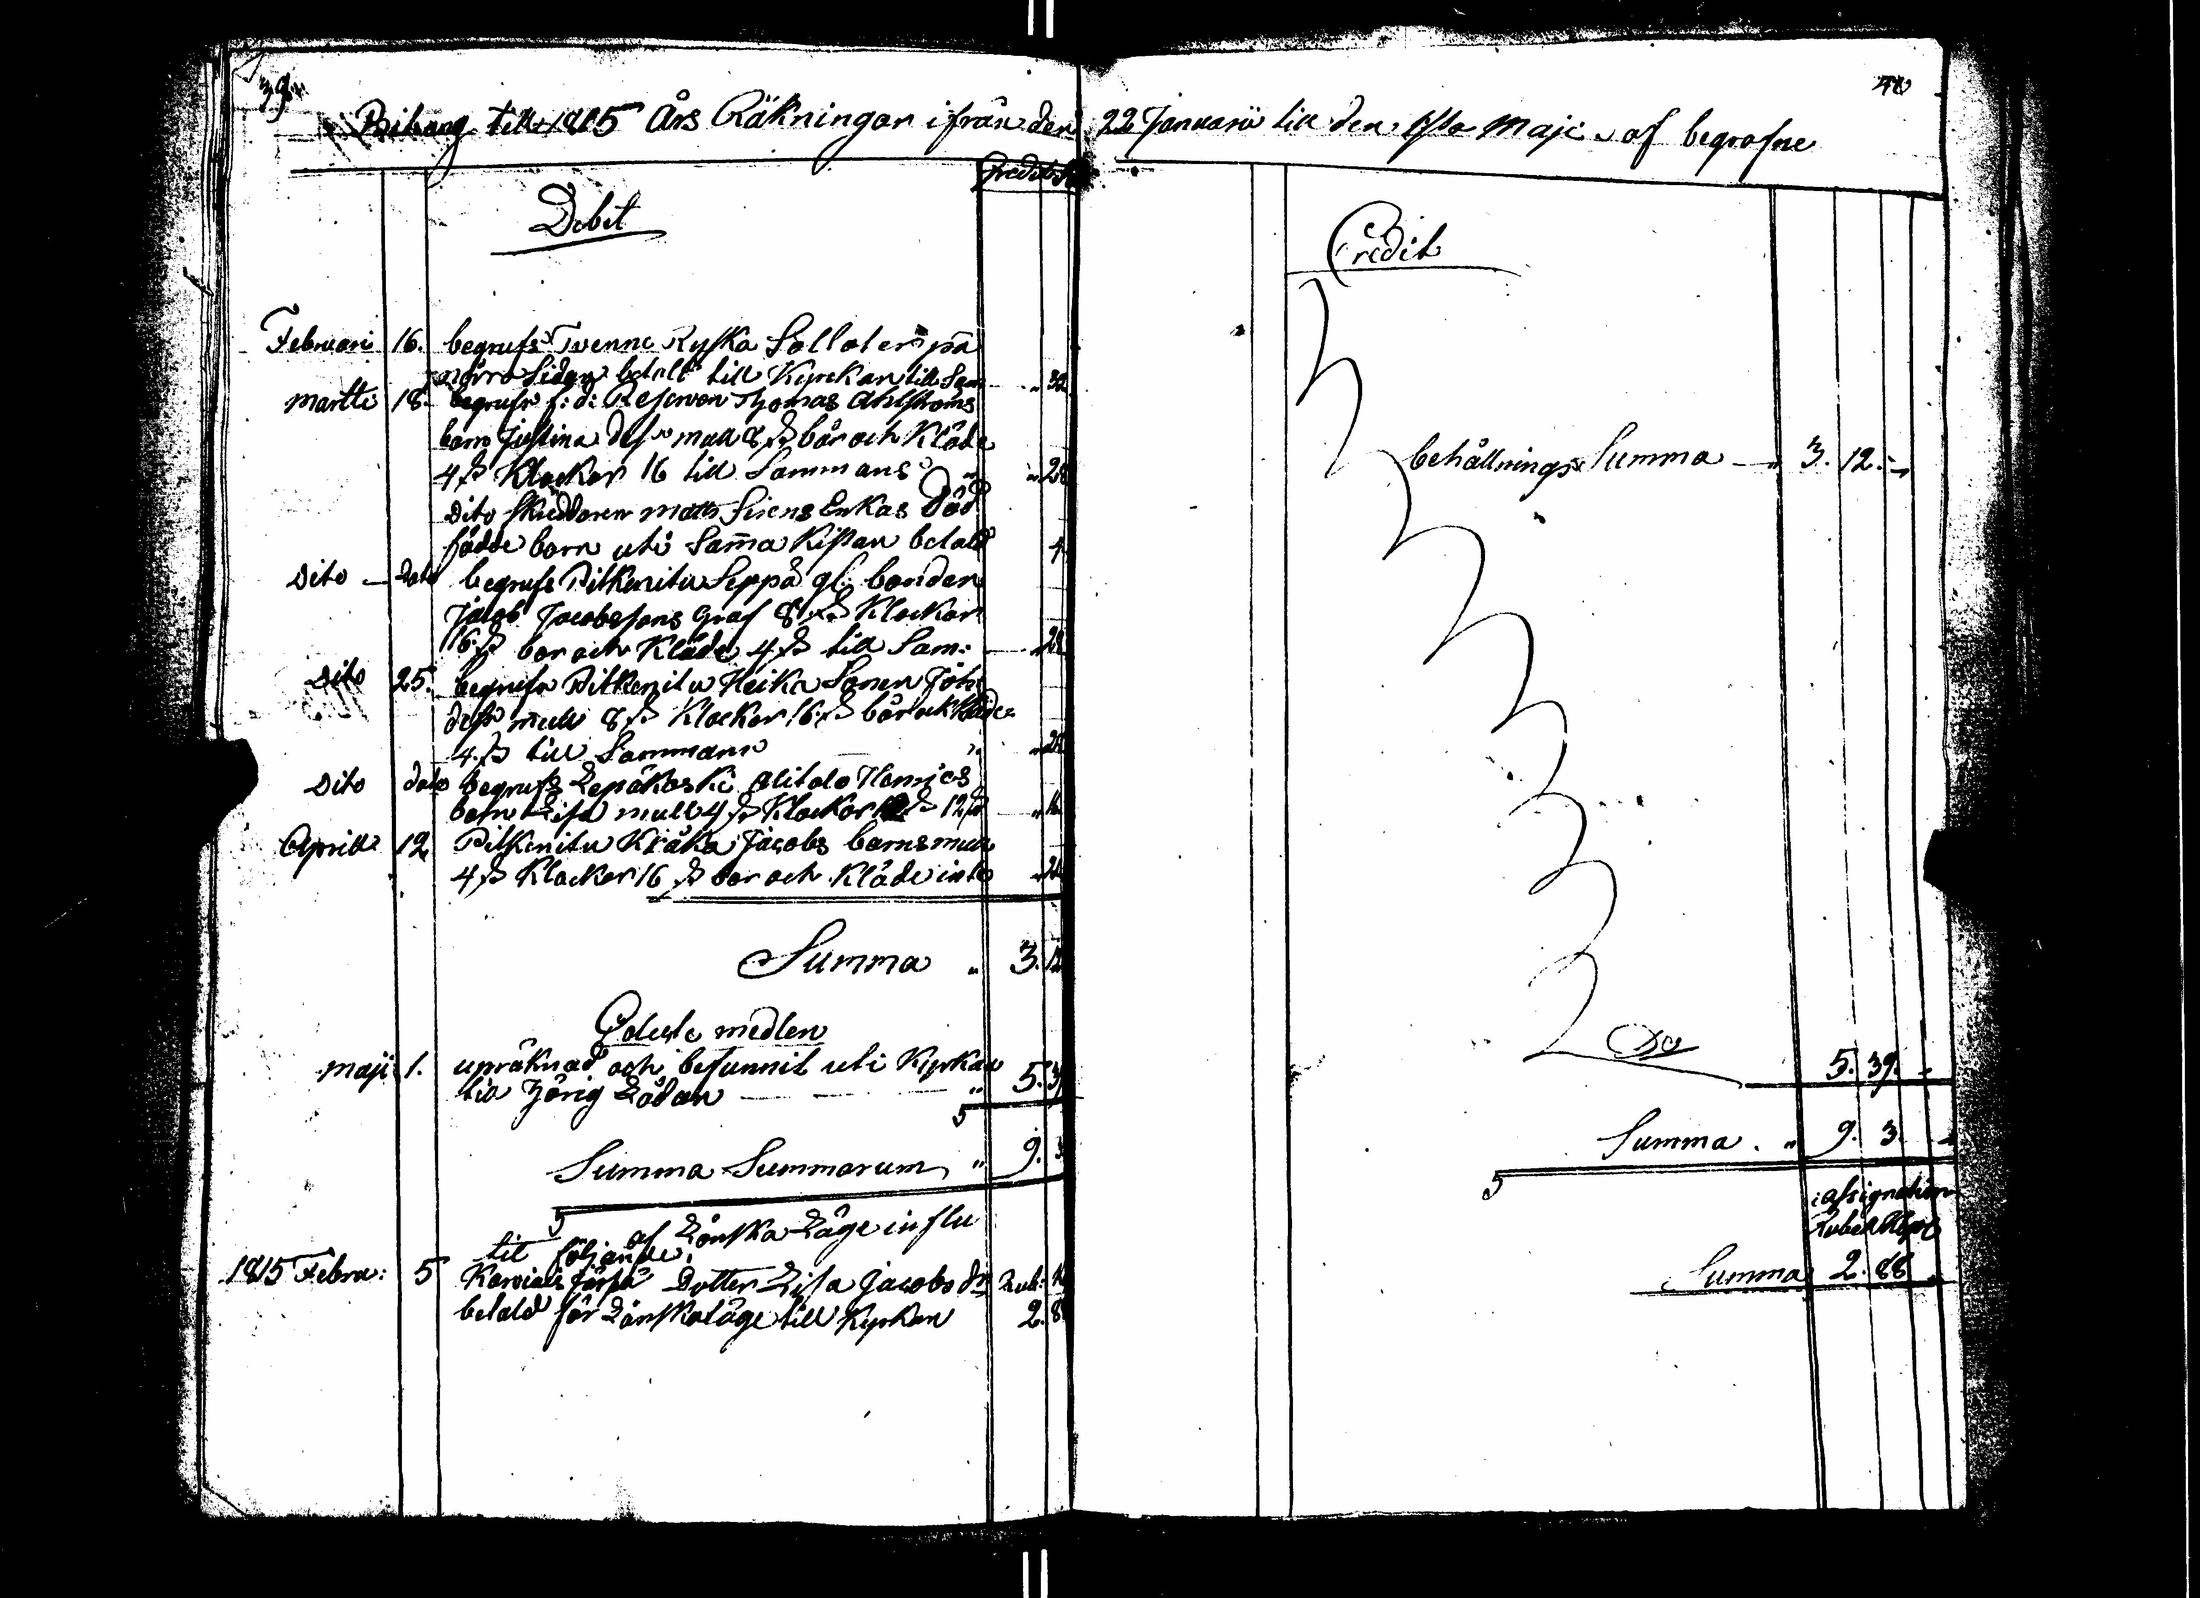 39.
40
Bihang till 1815 Års Räkningar ifrån den 22 Januarii till den 1sta Maji af begrafne
Debit
Februari 16. begrufs Tvenne Ryska Sollater på
norra Sidan betalt till Kyrckan till Sam 32
Martti 18. begrufs f: d: Reserven Thomas Ahlströms
barn Justina dess mull 8 ß bår och Kläde
4 ß Klockor 16 till Sammans 28
Dito Skreddaren Matts Sirens Enkas Död
födde barn uti Sam̄a Kistan betald 4
Dito dato begrufs Pitkenitu Seppä gl: bonden
Jacob Jacobssons graf 8 ß Klockor
16 ß bår och Kläde 4 ß till Sam: 28
Dito 25. begrufs Pitkenitu Heika Sonen Joh
dess mull 8 ß Klockor 16 ß bår och Kläde
4 ß till Sammans 28
Dito dato begrufs Lepäkoski Alitalo Henrics
barn Lisa mull 4 ß Klockor 12 ß
Aprill 12 Pitkenitu Kråka Jacobs barns mull
4 ß Klockor 16 ß bår och Kläde inte 20
Summa 3. 12
medlen
Maji 1. upräknad och befunnit uti Kyrkan
5. 39
Summa Summarum 9. 3
af Lånska Läge influ
tit följande:
1815 Febru: 5 Dotter Lisa Jacobs dr Rub:
betald för Lånskaläge till Kyrkan 2. 88
Credit
behållnings Summa 3. 12. -
Do 5. 39. -
Summa 9. 3. -
assignation
Rubel Kop
Summa 2. 88